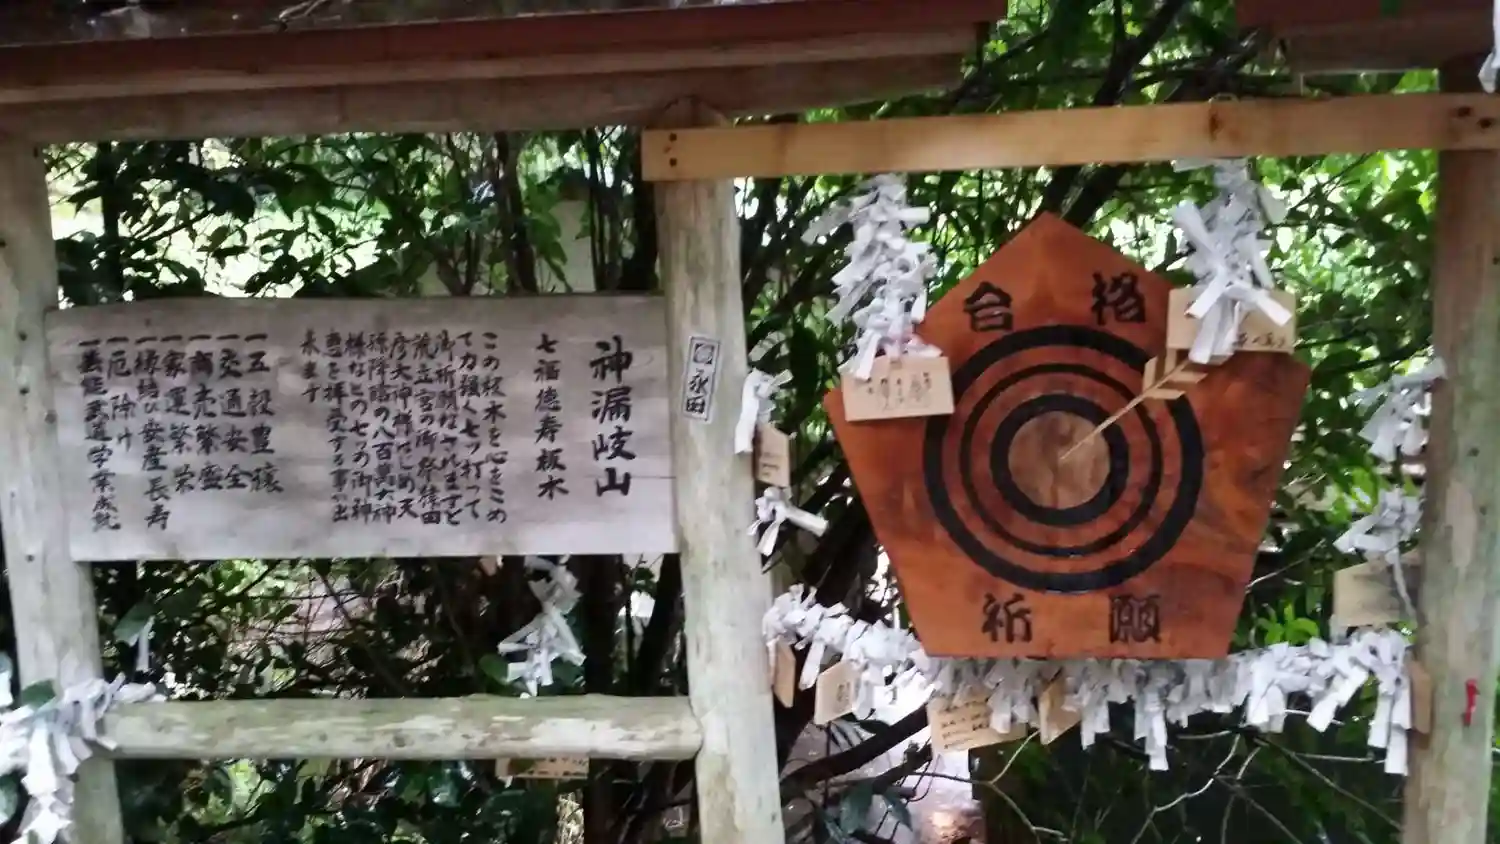 神漏岐山
七福徳寿板木
この板木を心をこめ
て力強く七ッ打って
御祈願なされますと
荒立宮の御祭神猿田
彦大神様はじめ天
孫降臨の八百萬大神
様などの七の御神
恵を拝受する事が出
来ます
一五穀豊穣
一交通安全
一商売繁盛
一家運繁栄
一縁結び安産長寿
一厄除け
一芸能武道学業成就
永田
合格
祈願